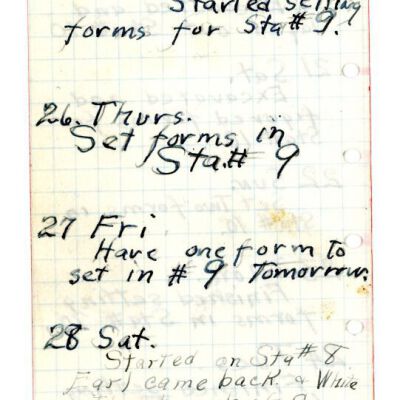 Started setting
forms for Sta # 9.
26. Thurs.
Set forms in
Sta. # 9
27 Fri
Have one form to
set in # 9 Tomorrow.
28 Sat.
Started on Sta # 8
Earl came back a While